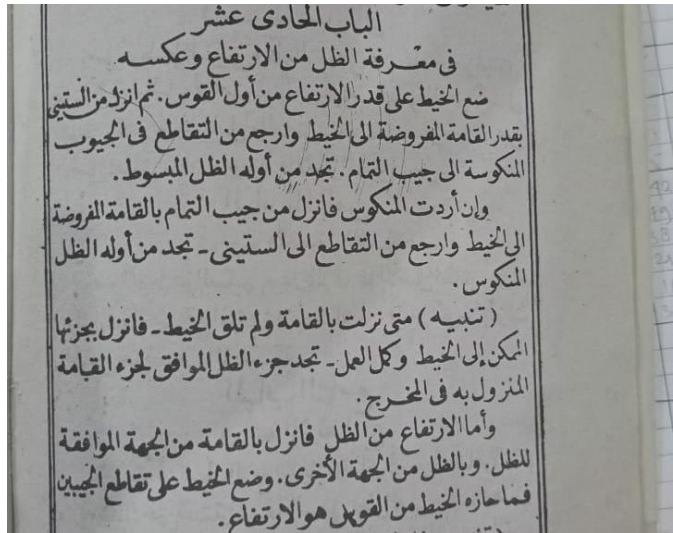 الباب الحادى عشر
فى معرفة الظل من الارتفاع وعكسه
ضع الخيط على قدر الارتفاع من أول القوس. ثم انزل من الستينى
بقدر القامة المفروضة الى الخيط وارجع من التقاطع فى الجيوب
المنكوسة الى جيب التمام. تجد من أوله الظل المبسوط.
وإن أردت المنكوس فانزل من جيب التمام بالقامة المفروضة
الى الخيط وارجع من التقاطع الى الستينى - تجد من أوله الظل
المنكوس.
(تنبيه) متى نزلت بالقامة ولم تلق الخيط - فانزل بجزئها
الممكن إلى الخيط وكمل العمل - تجد جزء الظل الموافق لجزء القامة
المنزول به فى المخرج.
وأما الارتفاع من الظل فانزل بالقامة من الجهة الموافقة
للظل. وبالظل من الجهة الأخرى. وضع الخيط على تقاطع الجيبين
فما حازه الخيط من القوس هو الارتفاع.